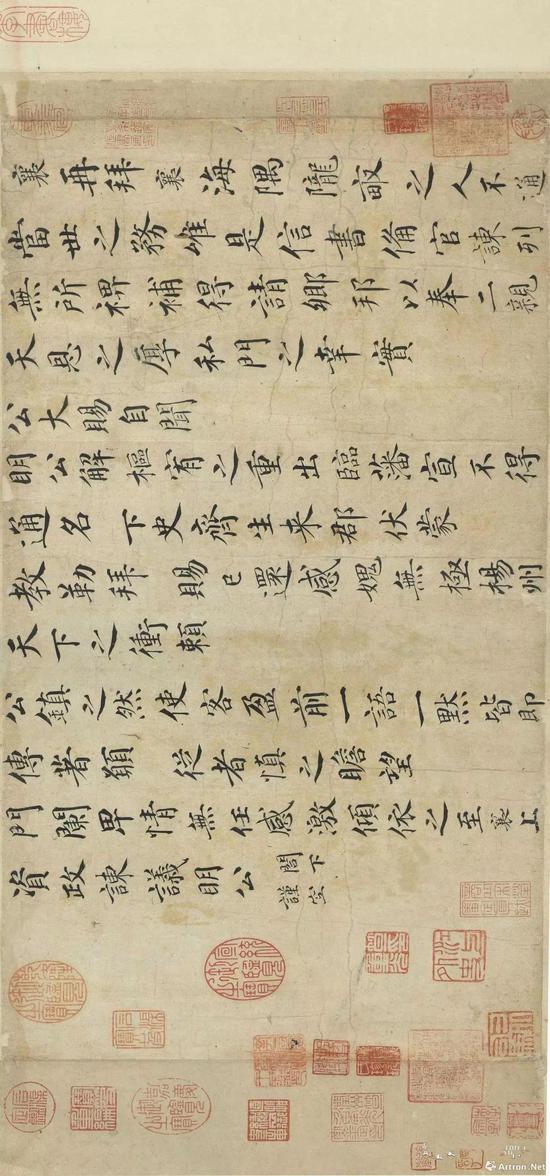 襄再拜襄海隅隴畝之人不通
當世之務唯是信書備官諫列
無所裨補得請鄉邦以奉二親
天恩之厚私門之幸實
公大賜自聞
明公解樞宥之重出臨藩宣不得
通名下史齊生来郡伏蒙
教勒拜賜已還感媿無極楊州
天下之衝頼
公鎮之然使客盈前一語一默皆即
傳著願從者慎之瞻望
門闌卑情無任感激傾依之至襄上
資政諫議明公閤下
謹空
Artron.Net